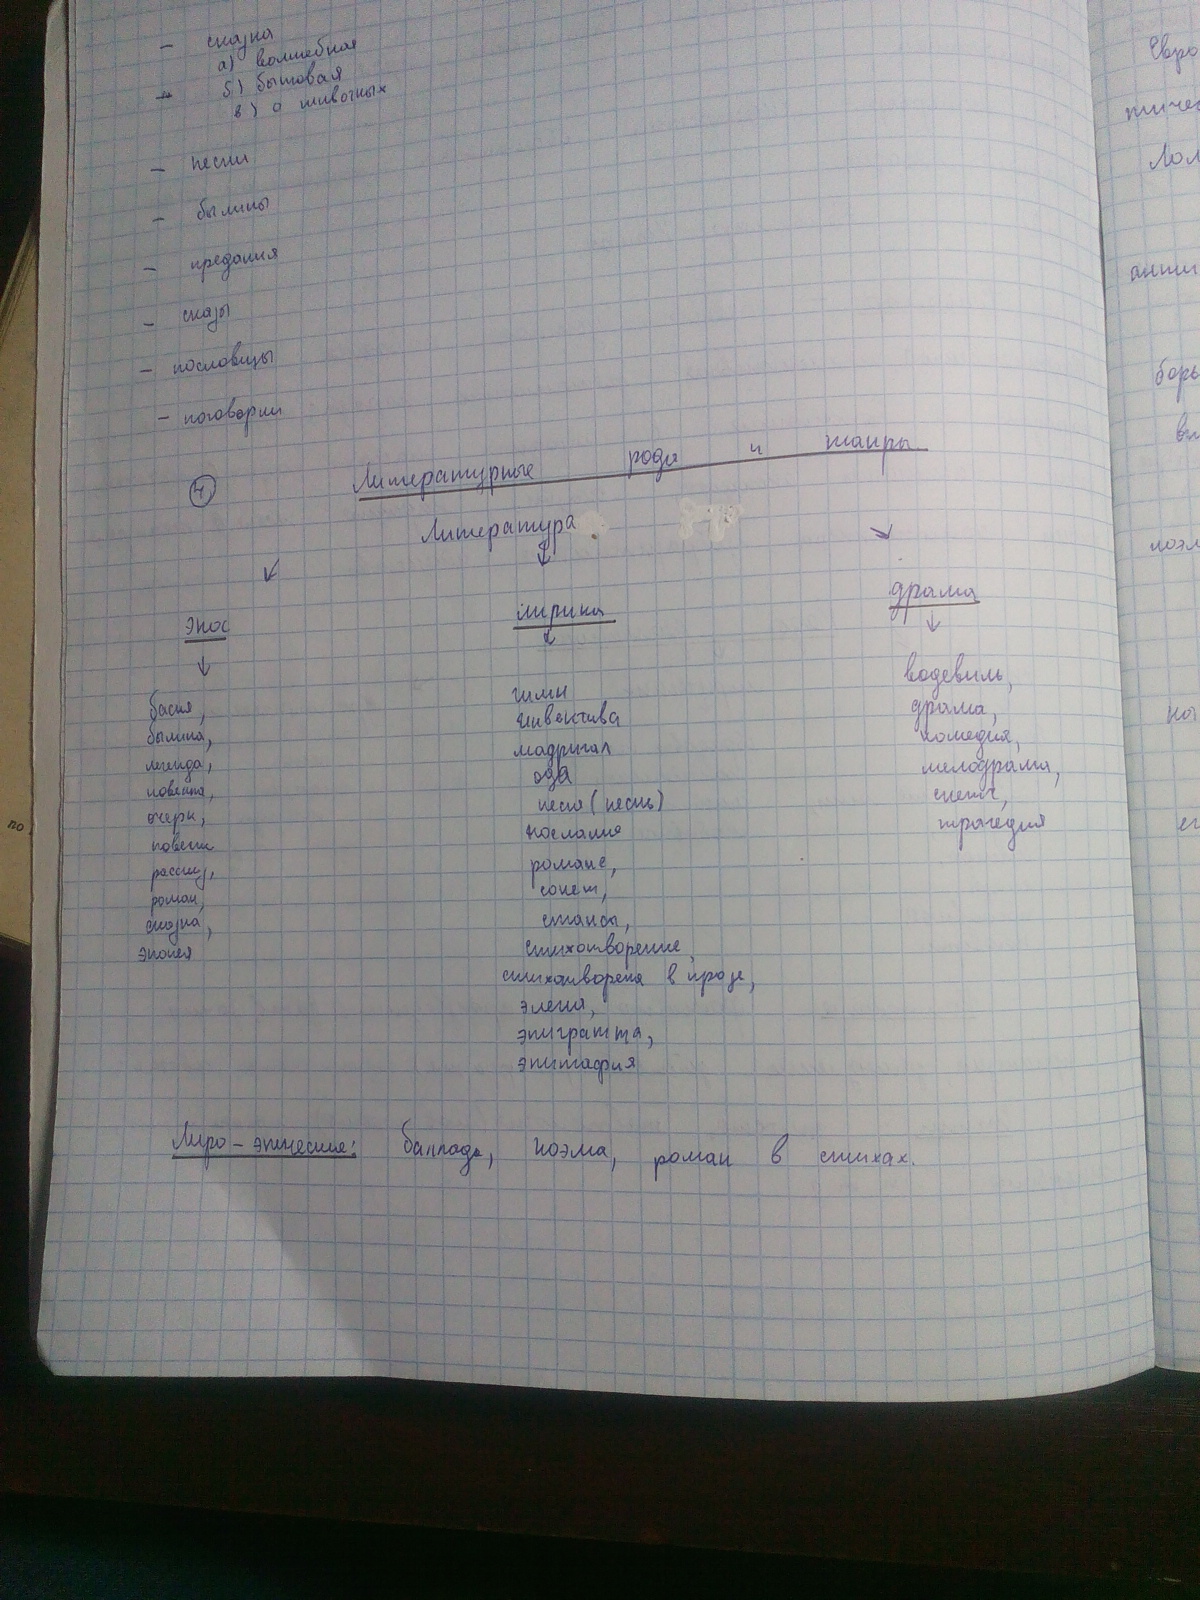 - сказка
а) волшебная
- б) бытовая
в) о живочных
- песни
- былины
- предания
- сказы
- пословицы
- поговорки
4 Литературные рода и жанры
Литература
эпос
лирика
драма
басня,
былина,
легенда,
новелла,
очерк,
повесть
рассказ,
роман,
сказка,
эпопея
гимн
инвектива
мадригал
ода
песня (песнь)
послание
романс,
сонет,
стансы,
стихотворение,
стихотворена в прозе,
элегия,
эпиграмма,
эпитафия
водевиль,
драма,
комедия,
мелодрама,
скетч,
трагедия
Лиро-эпические: баллада, поэма, роман в стихах.
по
Евро
тичес
Лол
анти
борь
вы
поэм
но
ег